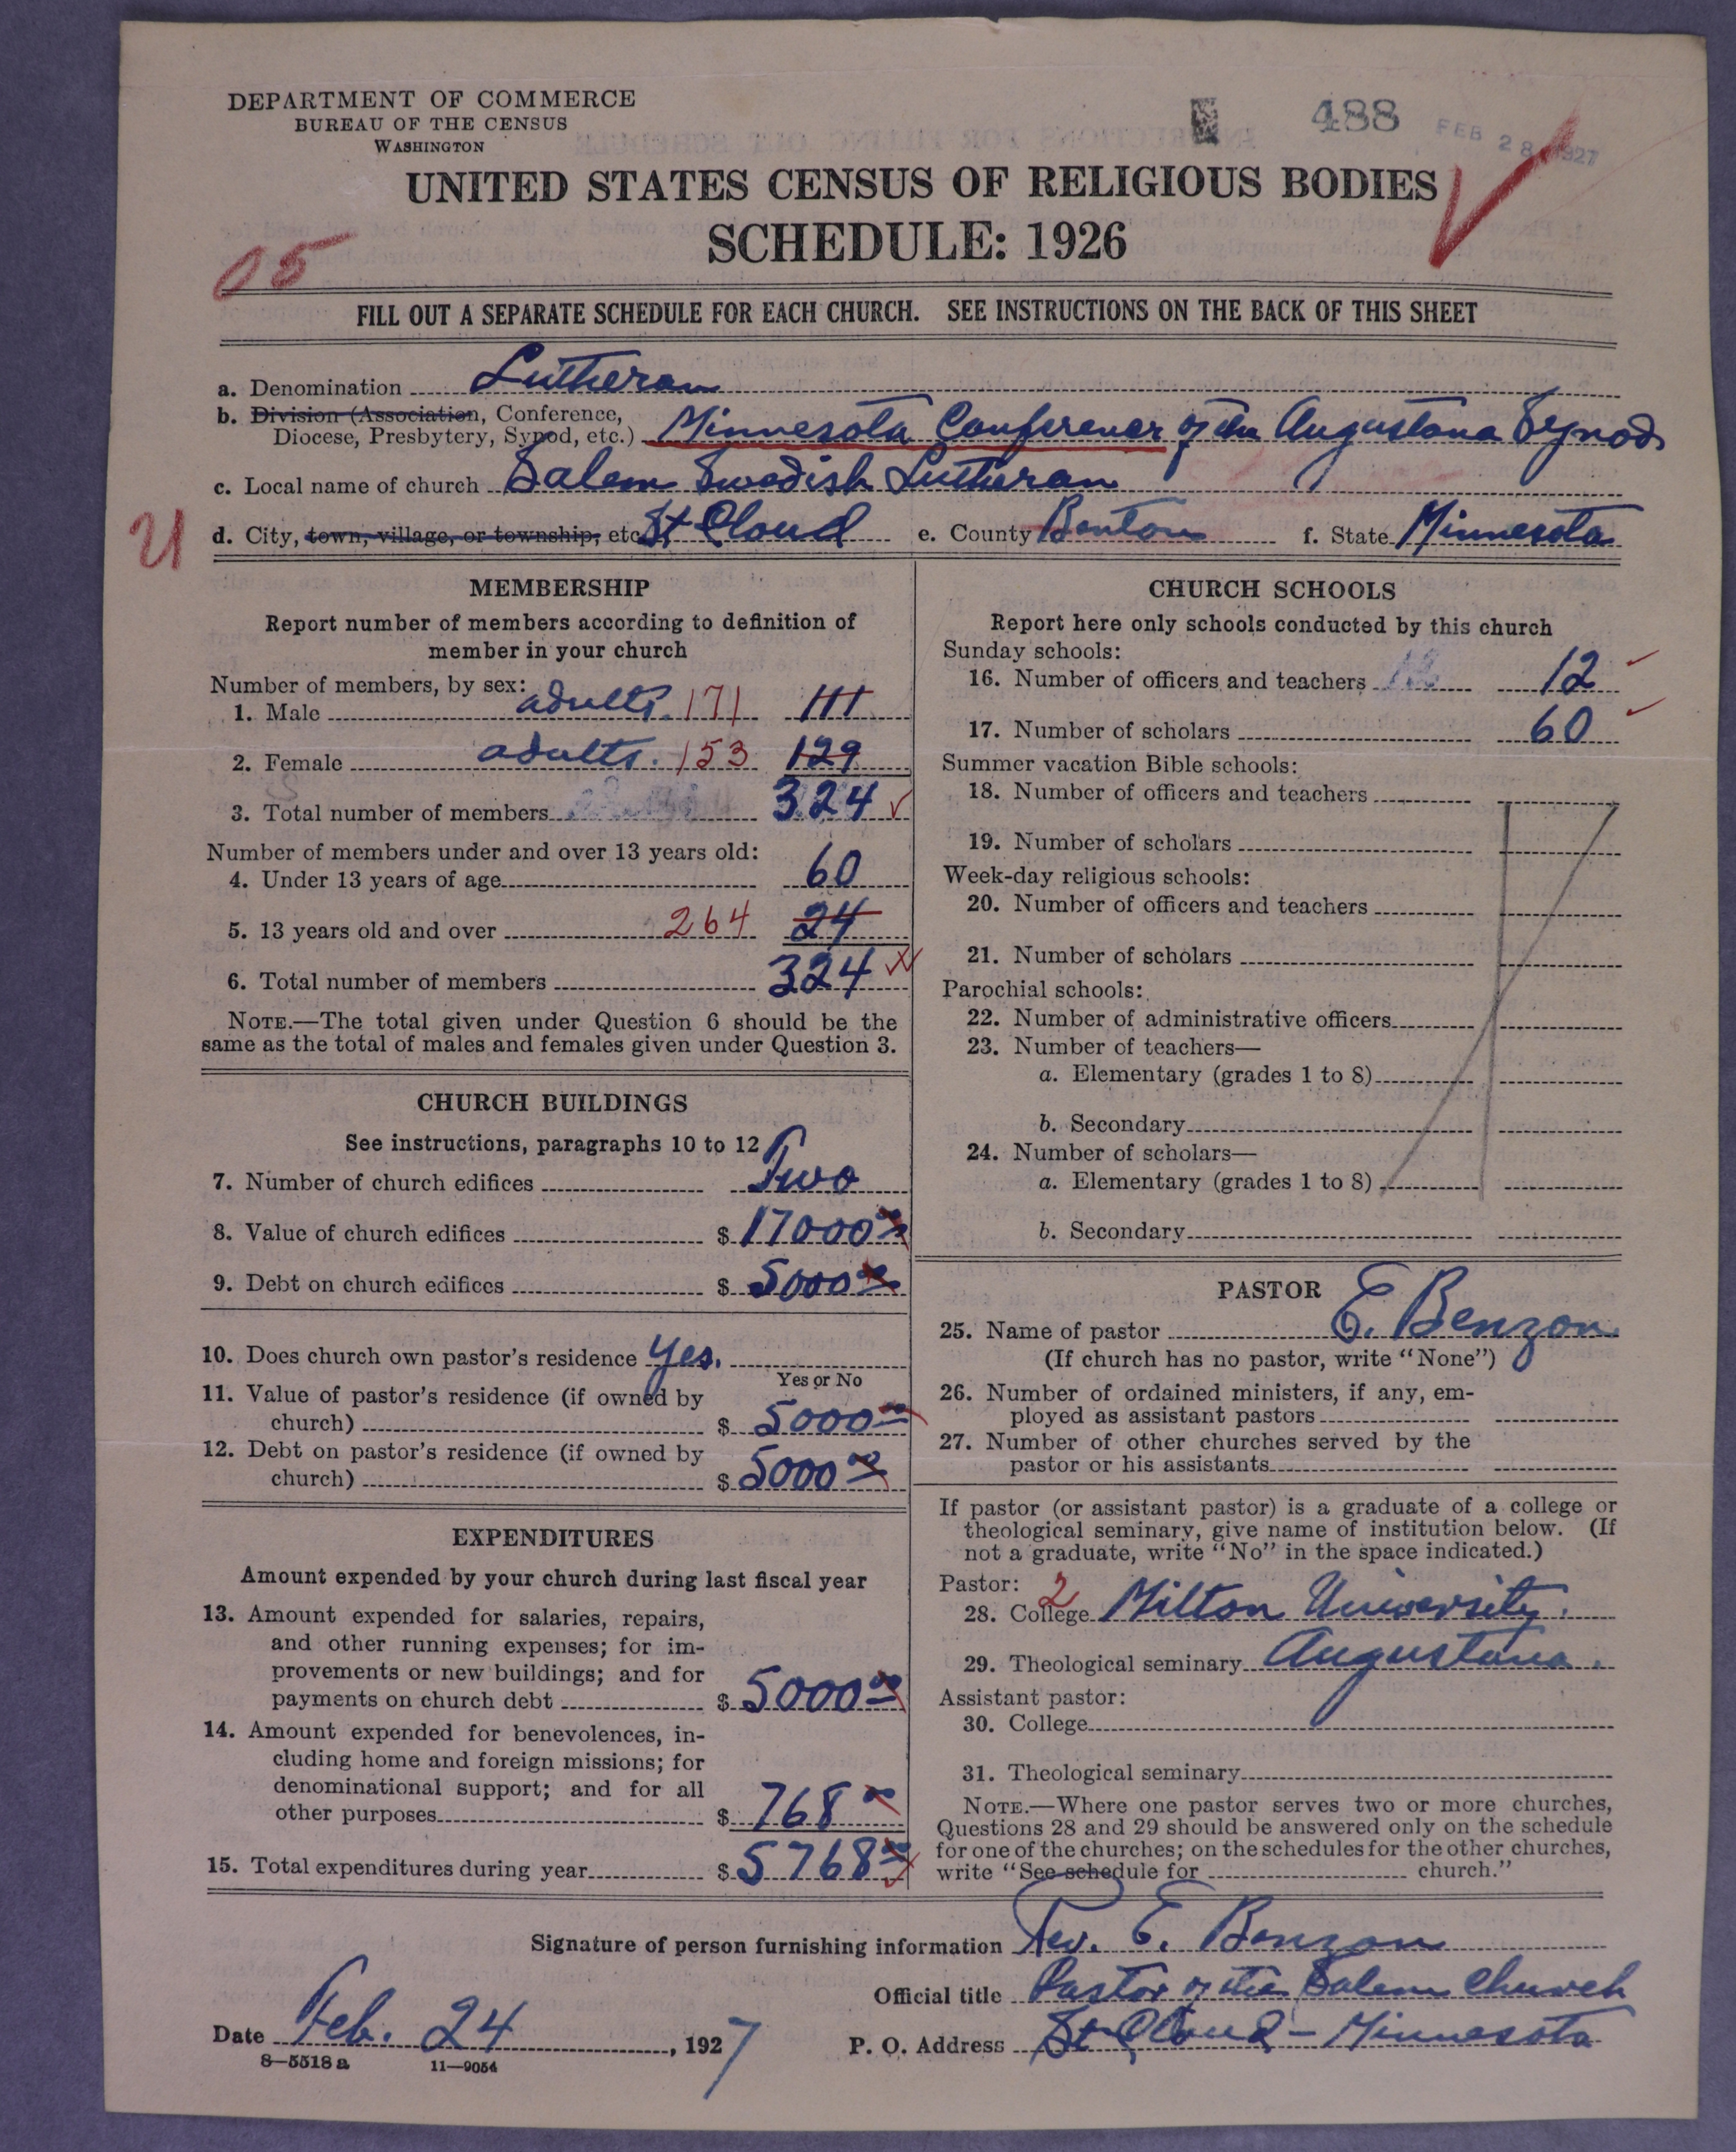 DEPARTMENT OF COMMERCE
BUREAU OF THE CENSUS
WASHINGTON
488
FEB 28 1927
UNITED STATES CENSUS OF RELIGIOUS BODIES
SCHEDULE: 1926
05
FILL OUT A SEPARATE SCHEDULE FOR EACH CHURCH. SEE INSTRUCTIONS ON THE BACK OF THIS SHEET
a. Denomination Lutheran
b. Division (Association, Conference,
Diocese, Presbytery, Synod, etc.) Minnesota Conference of the Augustana Synod
c. Local name of church Salem Swedish Lutheran
U d. City, town, village, or township, etc St Cloud e. County Benton f. State Minnesota
MEMBERSHIP
Report number of members according to definition of
member in your church
Number of members, by sex:
1. Male adults. 171 111
2. Female adults. 153 129
3. Total number of members 324
Number of members under and over 13 years old:
4. Under 13 years of age 60
5. 13 years old and over 264 24
6. Total number of members 324
NOTE.—The total given under Question 6 should be the
same as the total of males and females given under Question 3.
CHURCH BUILDINGS
See instructions, paragraphs 10 to 12
7. Number of church edifices Two
8. Value of church edifices $ 17000 00
9. Debt on church edifices $ 5000 00
10. Does church own pastor's residence Yes.
Yes or No
11. Value of pastor's residence (if owned by
church) $ 5000 00
12. Debt on pastor's residence (if owned by
church) $ 5000 00
EXPENDITURES
Amount expended by your church during last fiscal year
13. Amount expended for salaries, repairs,
and other running expenses; for im-
provements or new buildings; and for
payments on church debt $ 5000 00
14. Amount expended for benevolences, in-
cluding home and foreign missions; for
denominational support; and for all
other purposes $ 768 00
15. Total expenditures during year $ 5768 00
CHURCH SCHOOLS
Report here only schools conducted by this church
Sunday schools:
16. Number of officers and teachers 12
17. Number of scholars 60
Summer vacation Bible schools:
18. Number of officers and teachers
19. Number of scholars
Week-day religious schools:
20. Number of officers and teachers
21. Number of scholars
Parochial schools:
22. Number of administrative officers
23. Number of teachers—
a. Elementary (grades 1 to 8)
b. Secondary
24. Number of scholars—
a. Elementary (grades 1 to 8)
b. Secondary
PASTOR
25. Name of pastor E. Benzon.
(If church has no pastor, write "None")
26. Number of ordained ministers, if any, em-
ployed as assistant pastors
27. Number of other churches served by the
pastor or his assistants
If pastor (or assistant pastor) is a graduate of a college or
theological seminary, give name of institution below. (If
not a graduate, write "No" in the space indicated.)
Pastor: 2
28. College Milton University.
29. Theological seminary Augustana.
Assistant pastor:
30. College
31. Theological seminary
NOTE.—Where one pastor serves two or more churches,
Questions 28 and 29 should be answered only on the schedule
for one of the churches; on the schedules for the other churches,
write "See schedule for church."
Signature of person furnishing information Rev. E. Benzon
Official title Pastor of the Salem Church
Date Feb. 24, 1927 P. O. Address St Cloud - Minnesota
8—5518 a 11—9054